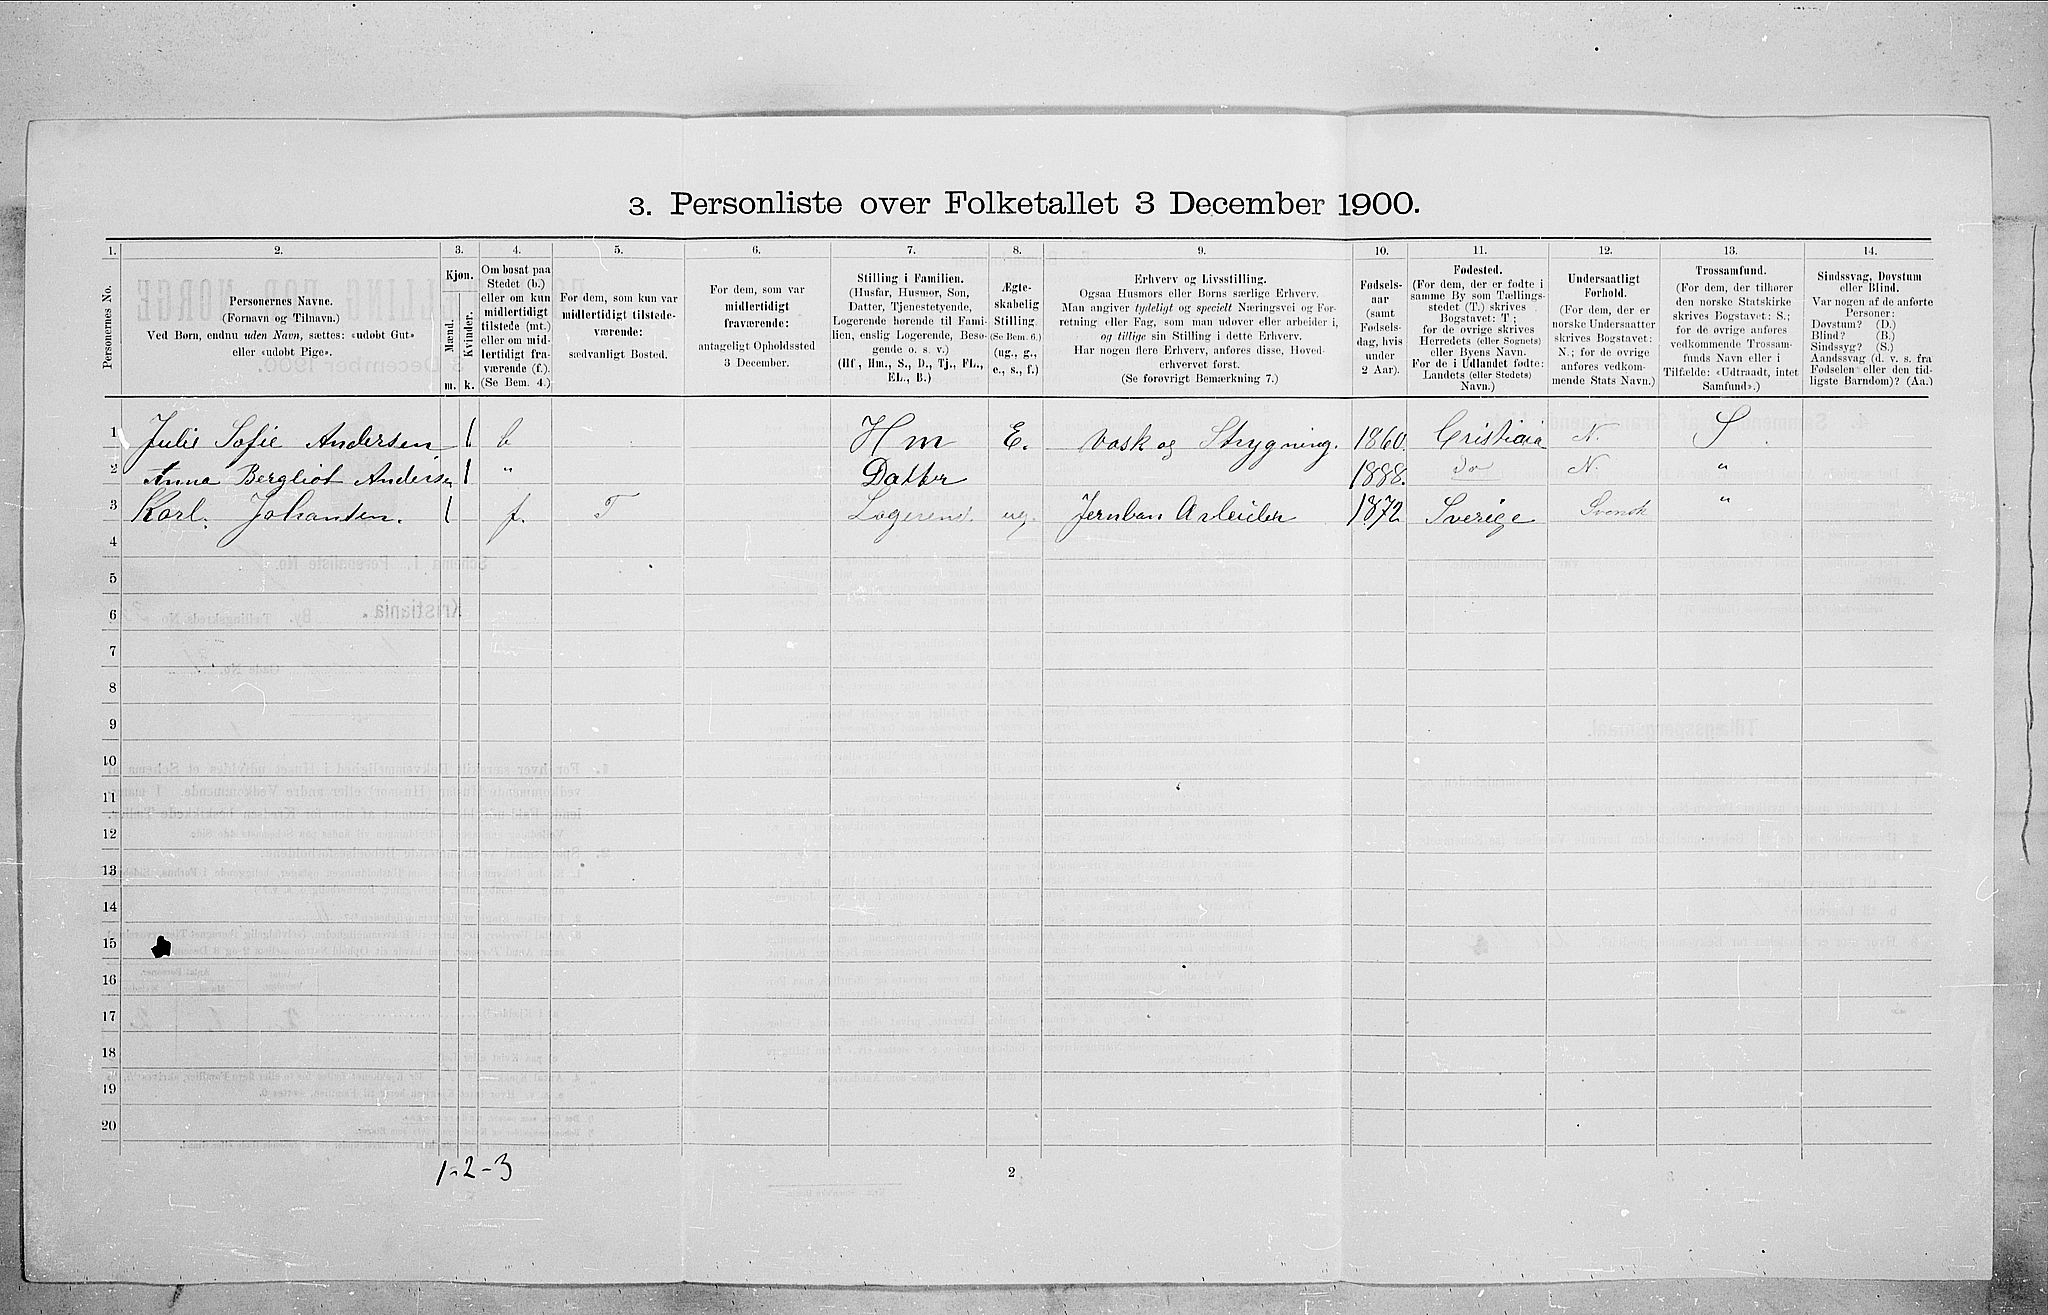 3. Personliste over Folketallet 3 December 1900.
1. 2. 3. 4. 5. 6. 7. 8. 9. 10. 11. 12. 13. 14.
Personernes No.
Personernes Navne.
(Fornavn og Tilnavn.)
Ved Børn, endnu uden Navn, sættes: «udøbt Gut»
eller «udøbt Pige».
Kjøn.
Mænd. Kvinder.
m. k.
Om bosat paa
Stedet (b.)
eller om kun
midlertidigt
tilstede (mt.)
eller om mid-
lertidigt fra-
værende (f.).
(Se Bem. 4.)
For dem, som kun var
midlertidigt tilstede-
værende:
sædvanligt Bosted.
For dem, som var
midlertidigt
fraværende:
antageligt Opholdssted
3 December.
Stilling i Familien.
(Husfar, Husmor, Søn,
Datter, Tjenestetyende,
Logerende hørende til Fami-
lien, enslig Logerende, Besø-
gende o. s. v.)
(Hf., Hm., S., D., Tj., FL.,
EL., B.)
Ægte-
skabelig
Stilling.
(Se Bem. 6.)
(ug., g.,
e., s., f.)
Erhverv og Livsstilling.
Ogsaa Husmors eller Børns særlige Erhverv.
Man angiver tydeligt og specielt Næringsvei og For-
retning eller Fag, som man udøver eller arbeider i,
og tillige sin Stilling i dette Erhverv.
Har nogen flere Erhverv, anføres disse, Hoved-
erhvervet først.
(Se forøvrigt Bemærkning 7.)
Fødsels-
aar
(samt
Fødsels-
dag, hvis
under
2 Aar).
Fødested.
(For dem, der er fødte i
samme By som Tællings-
stedet (T.) skrives
Bogstavet: T;
for de øvrige skrives
Herredets (eller Sognets)
eller Byens Navn.
For de i Udlandet fødte:
Landets (eller Stedets)
Navn.)
Undersaatligt
Forhold.
(For dem, der er
norske Undersaatter
skrives Bogstavet:
N.; for de øvrige
anføres vedkom-
mende Stats Navn.)
Trossamfund.
(For dem, der tilhører
den norske Statskirke
skrives Bogstavet: S.;
for de øvrige anføres
vedkommende Trossam-
funds Navn eller i
Tilfælde: «Udtraadt, intet
Samfund».)
Sindssvag, Døvstum
eller Blind.
Var nogen af de anførte
Personer:
Døvstum? (D.)
Blind? (B.)
Sindssyg? (S.)
Aandssvag (d. v. s. fra
Fødselen eller den tid-
ligste Barndom)? (Aa.)
1 Julie Sofie Andersen 1 b Hm E. Vask og Strygning. 1860. Cristiaia N. S.
2 Anna Bergliot Andersen 1 " Datter 1888. do N. "
3 Karl. Johansen. 1 f. T Logerend. ug. Jernban Arbeider 1872 Sverige Svensk "
4
5
6
7
8
9
10
11
12
13
14
15
16
17
18
19
20
1-2-3
2